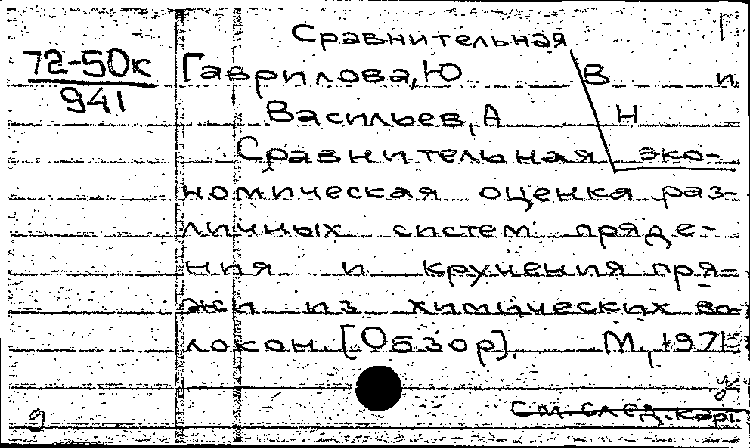 Сравнительная
72-50к
941
Гаврилова, Ю В и
Васильев, А Н
Сравнительная эко-
номическая оценка раз-
личных систем пряде-
ния и кручения пря-
жи из химических во-
локон [Обзор]. М., 1971
см. след. карт.
9